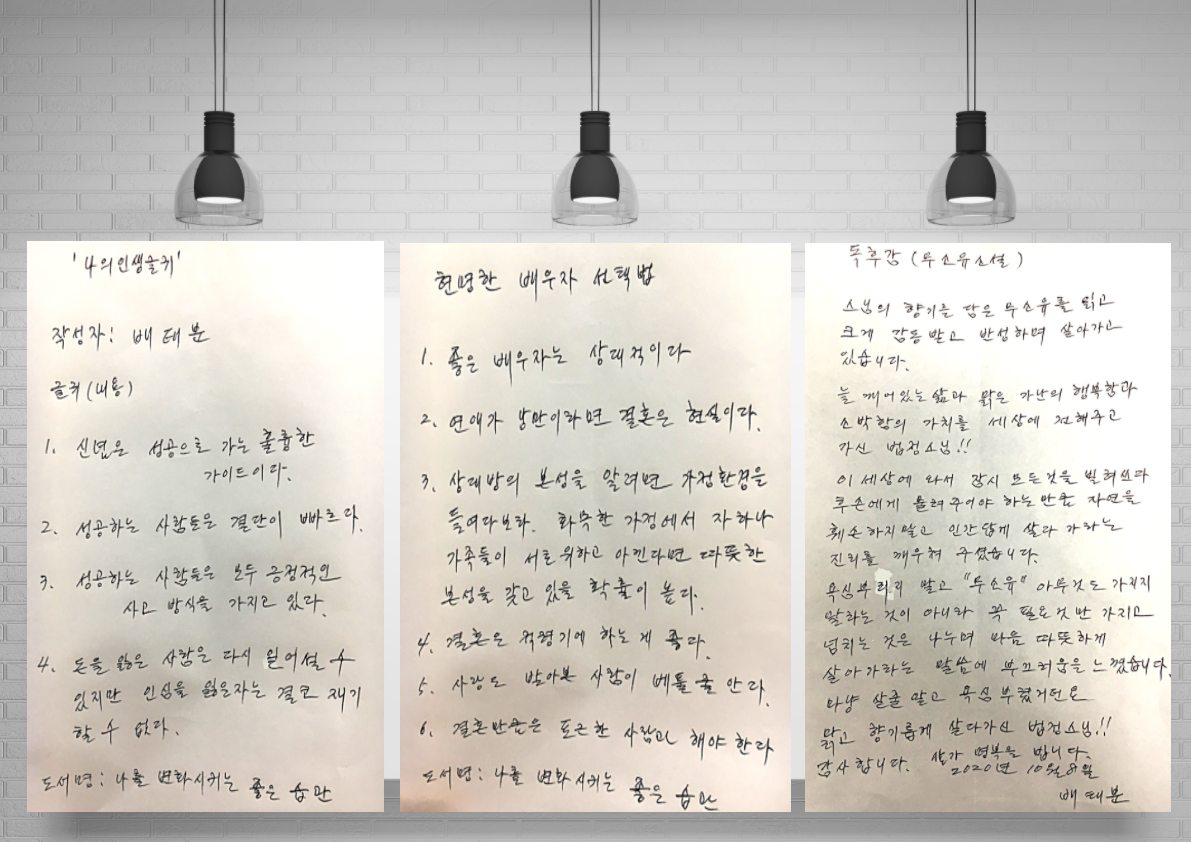 '나의인생글귀'
작성자: 배태분
글귀(내용)
1. 신념은 성공으로 가는 훌륭한
가이드이다.
2. 성공하는 사람들은 결단이 빠르다.
3. 성공하는 사람들은 모두 긍정적인
사고 방식을 가지고 있다.
4. 돈을 잃은 사람은 다시 일어설 수
있지만 인심을 잃은자는 결코 재기
할 수 없다.
도서명: 나를 변화시키는 좋은 습관
현명한 배우자 선택법
1. 좋은 배우자는 상대적이다
2. 연애가 낭만이라면 결혼은 현실이다.
3. 상대방의 본성을 알려면 가정환경을
들여다보라. 화목한 가정에서 자라나
가족들이 서로 위하고 아낀다면 따뜻한
본성을 갖고 있을 확률이 높다.
4. 결혼은 적령기에 하는 게 좋다.
5. 사랑도 받아본 사람이 베풀줄 안다.
6. 결혼만큼은 포근한 사람과 해야 한다
도서명: 나를 변화시키는 좋은 습관
독후감 (무소유소설)
스님의 향기를 담은 무소유를 읽고
크게 감동받고 반성하며 살아가고
있습니다.
늘 깨어있는 삶과 맑은 가난의 행복함과
소박함의 가치를 세상에 전해주고
가신 법정스님!!
이 세상에 와서 잠시 모든것을 빌려쓰다
후손에게 돌려주어야 하는 만큼 자연을
훼손하지말고 인간답게 살다 가라는
진리를 깨우쳐 주셨습니다.
욕심부리지 말고 "무소유" 아무것도 가지지
말라는 것이 아니라 꼭 필요것만 가지고
넘치는 것은 나누며 마음 따뜻하게
살아가라는 말씀에 부끄러움을 느꼈습니다.
마냥 살줄 알고 욕심 부렸거던요
맑고 향기롭게 살다가신 법정스님!!
감사합니다. 삼가 명복을 빕니다.
2020년 10월 8일
배태분